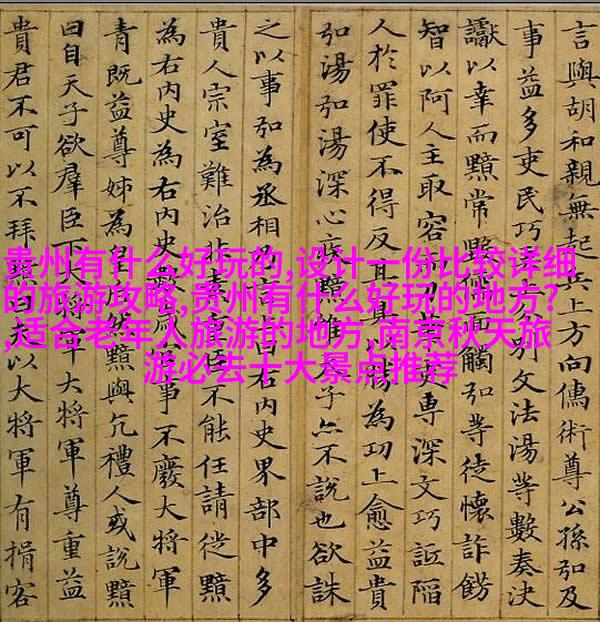 言與胡和親無起兵上方向儒術尊公孫弘及
事益多吏民巧分別文法湯等數奏決
讞以幸而黯常毀儒面觸弘等徒懷詐飾
智以阿人主取容吏專深文巧詆陷
人於罪使不得反其真以勝為功上愈益貴
弘湯弘湯深心疾黯雖子亦不說也欲誅
之以事弘為丞相乃言上曰右內史界部中多
貴人宗室難治非素重臣不能任請徙黯
為右內史為右內史數歲官事不廢大將軍
青既益尊姊為皇后然黯與亢禮人或說黯
曰自天子欲羣臣下大將軍大將軍尊重益
貴君不可以不拜黯曰夫以大將軍有揖客
贵州有什么好玩的,设计一份比较详细
的旅游攻略,贵州有什么好玩的地方?
,适合老年人旅游的地方,南京秋天旅
游必去十大景点推荐